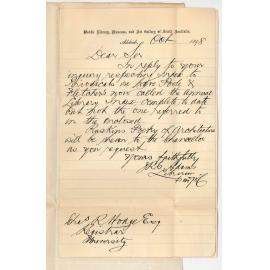 Public Library, Museum, and Art Gallery of South Australia.
Adelaide, Oct 1898
Dear Sir
In reply to your
inquiry respecting Index to
Periodicals we have Poole &
Fletcher's now called the Annual
Library Index complete to date
but not the one referred to
in the enclosed.
Ruskin's Poetry of Architecture
will be shown to the Chancellor
as you request
Yours faithfully
Adams
Librarian
Chas R Hodge Esq
Registrar
University